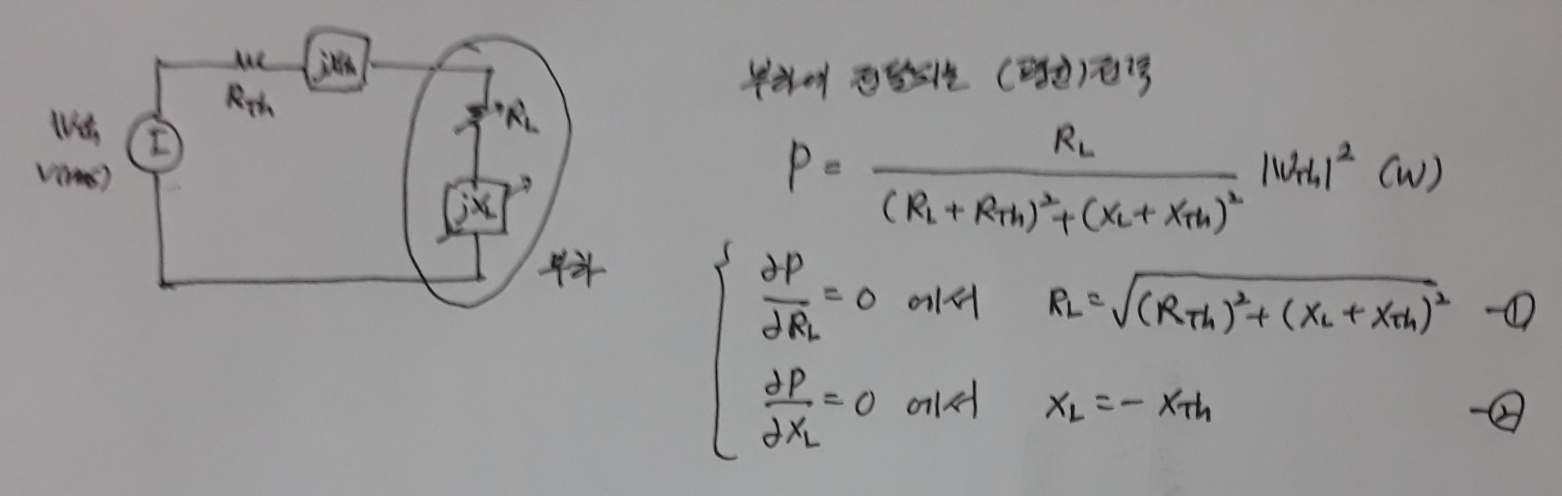 jXth
RTh
Vth
V(rms)
RL
jXL
부하
부하에 전달되는 (평균)전력
P = RL / (RL + RTh)² + (XL + XTh)² |VTh|² (W)
∂P/∂RL = 0 에서 RL = √(RTh)² + (XL + XTh)² -①
∂P/∂XL = 0 에서 XL = - XTh -②